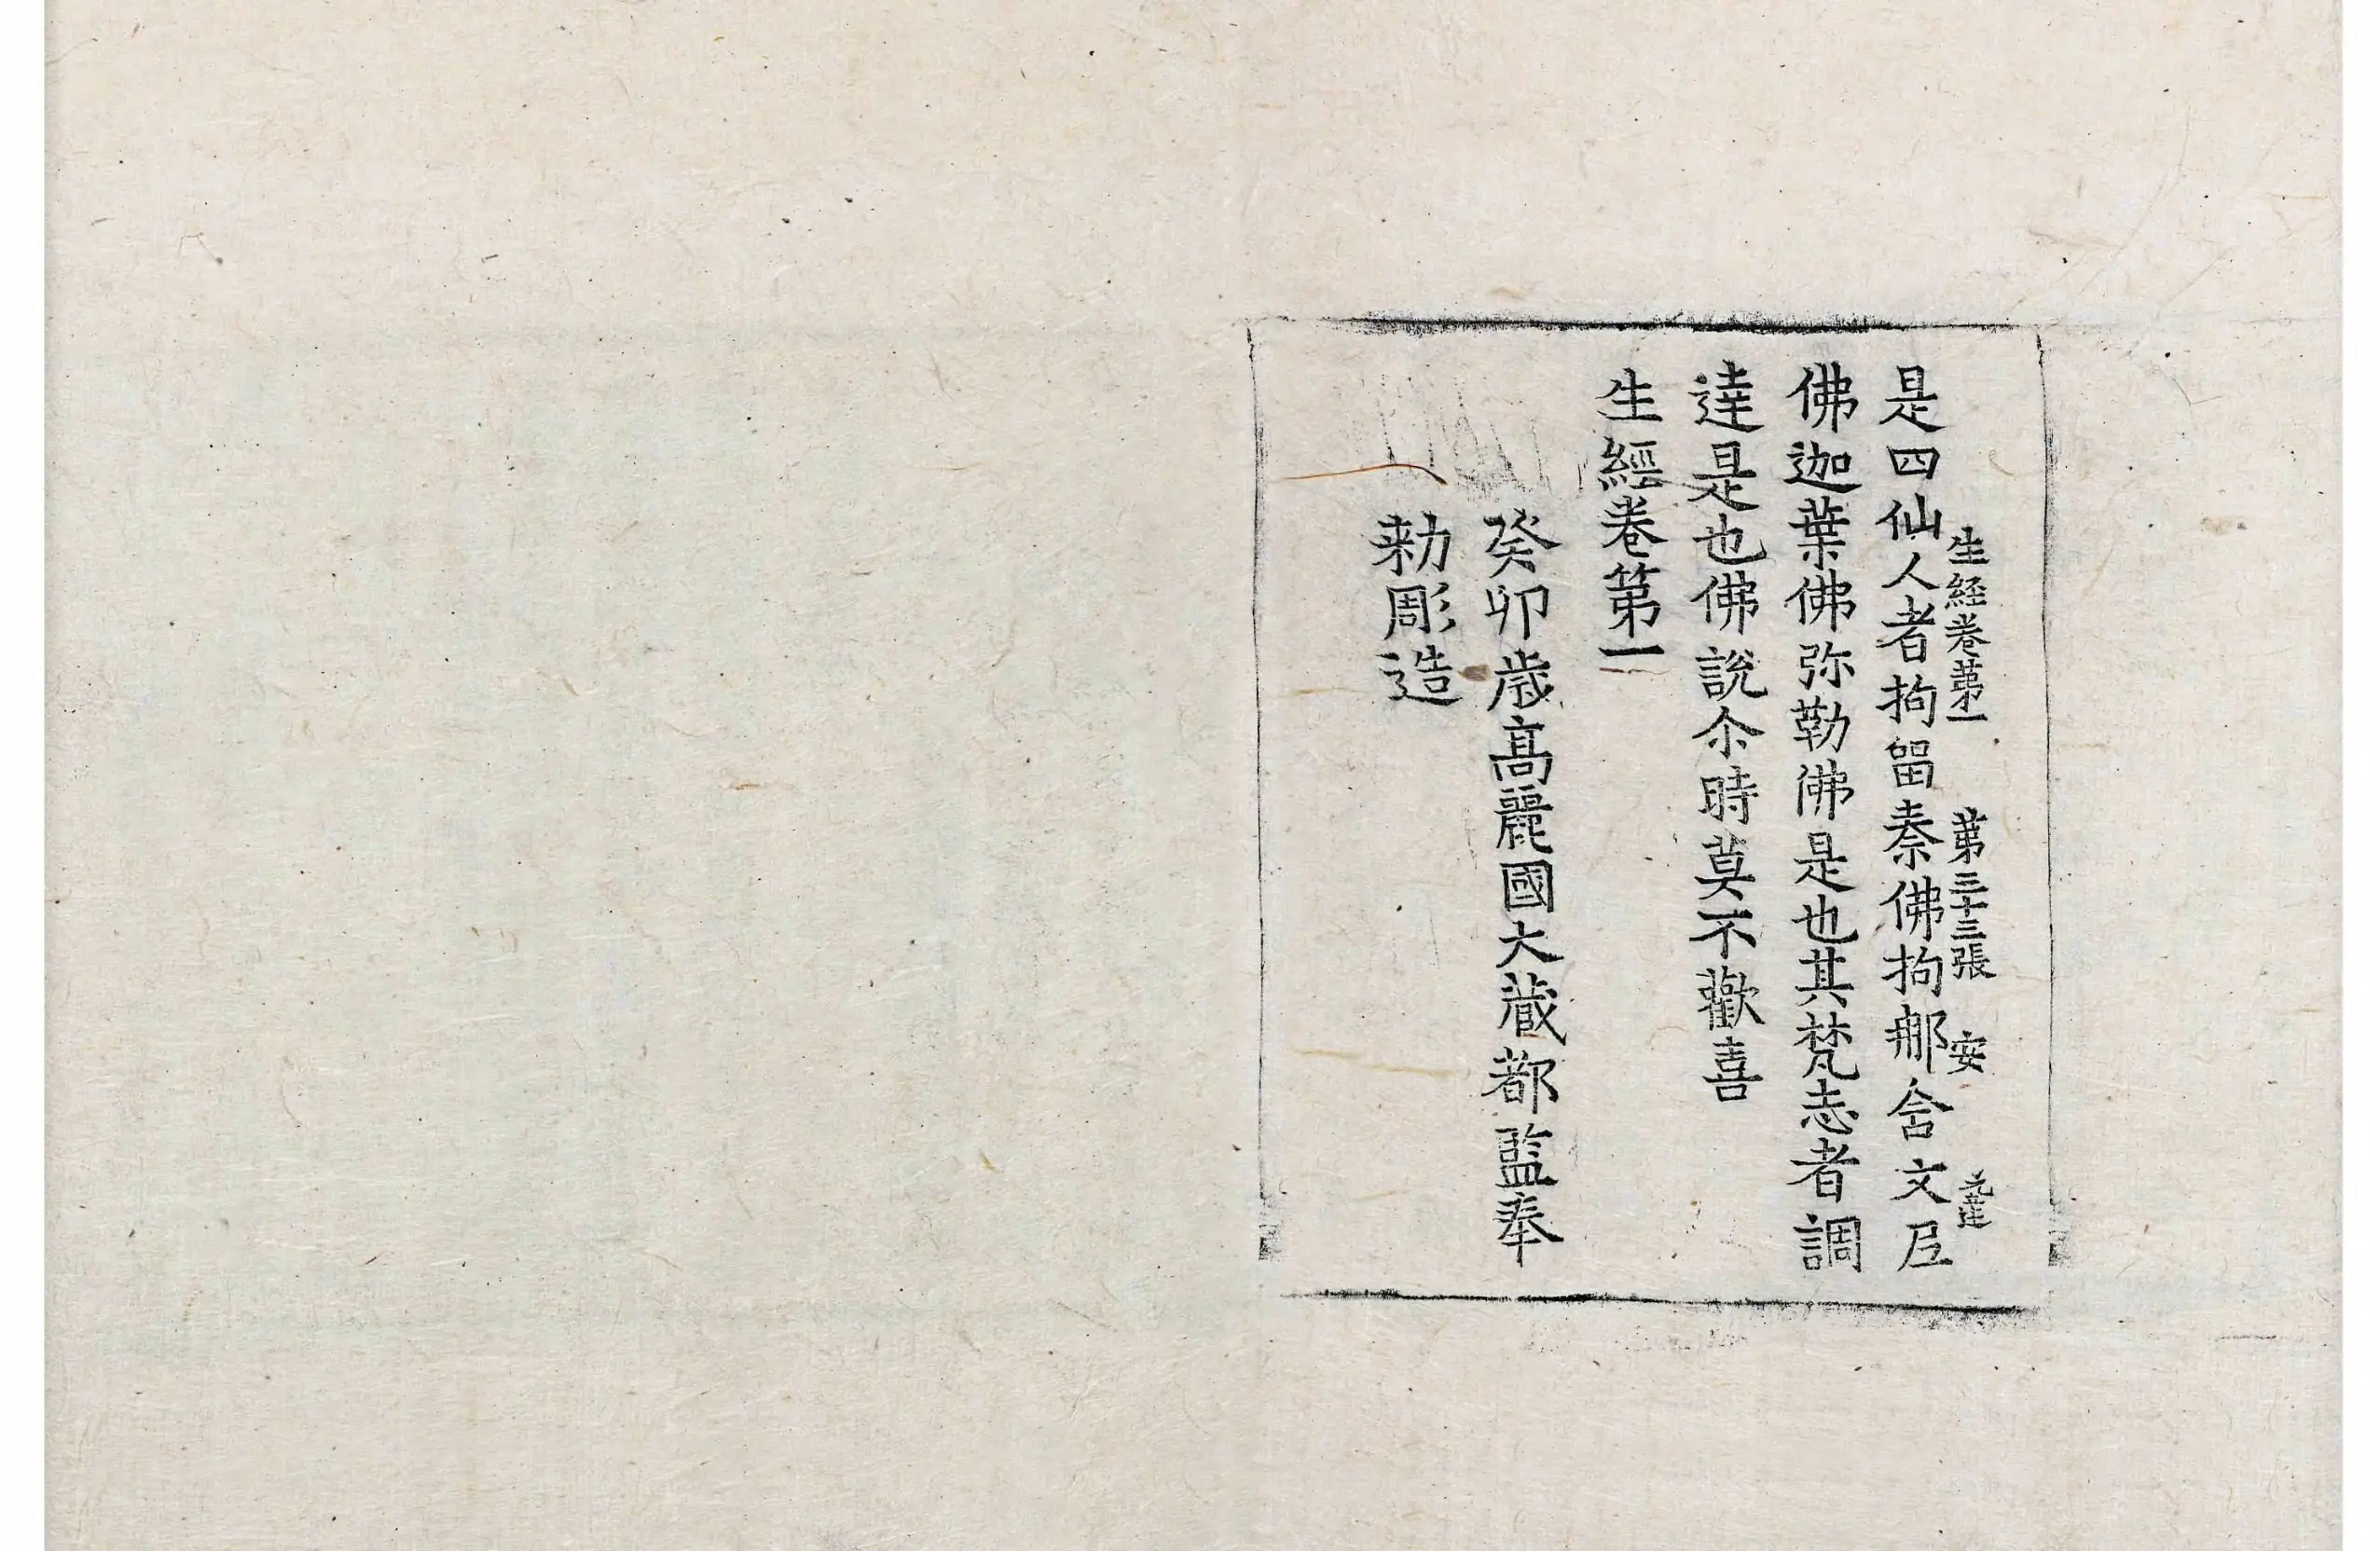 生経卷第一 第三十三張 安 元達
是四仙人者拘留秦佛拘那含文尼
佛迦葉佛弥勒佛是也其梵志者調
達是也佛說尒時莫不歡喜
生經卷第一
癸卯歳高麗國大藏都監奉
勅彫造